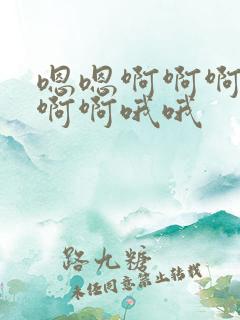 嗯嗯啊啊啊
啊啊哦哦
路九糖
未经同意禁止转载